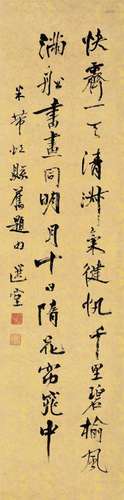 快霽一天清淑氣健帆千里碧榆風
滿舩書畫同明月十日隋花窈窕中
米芾虹縣舊題 選堂